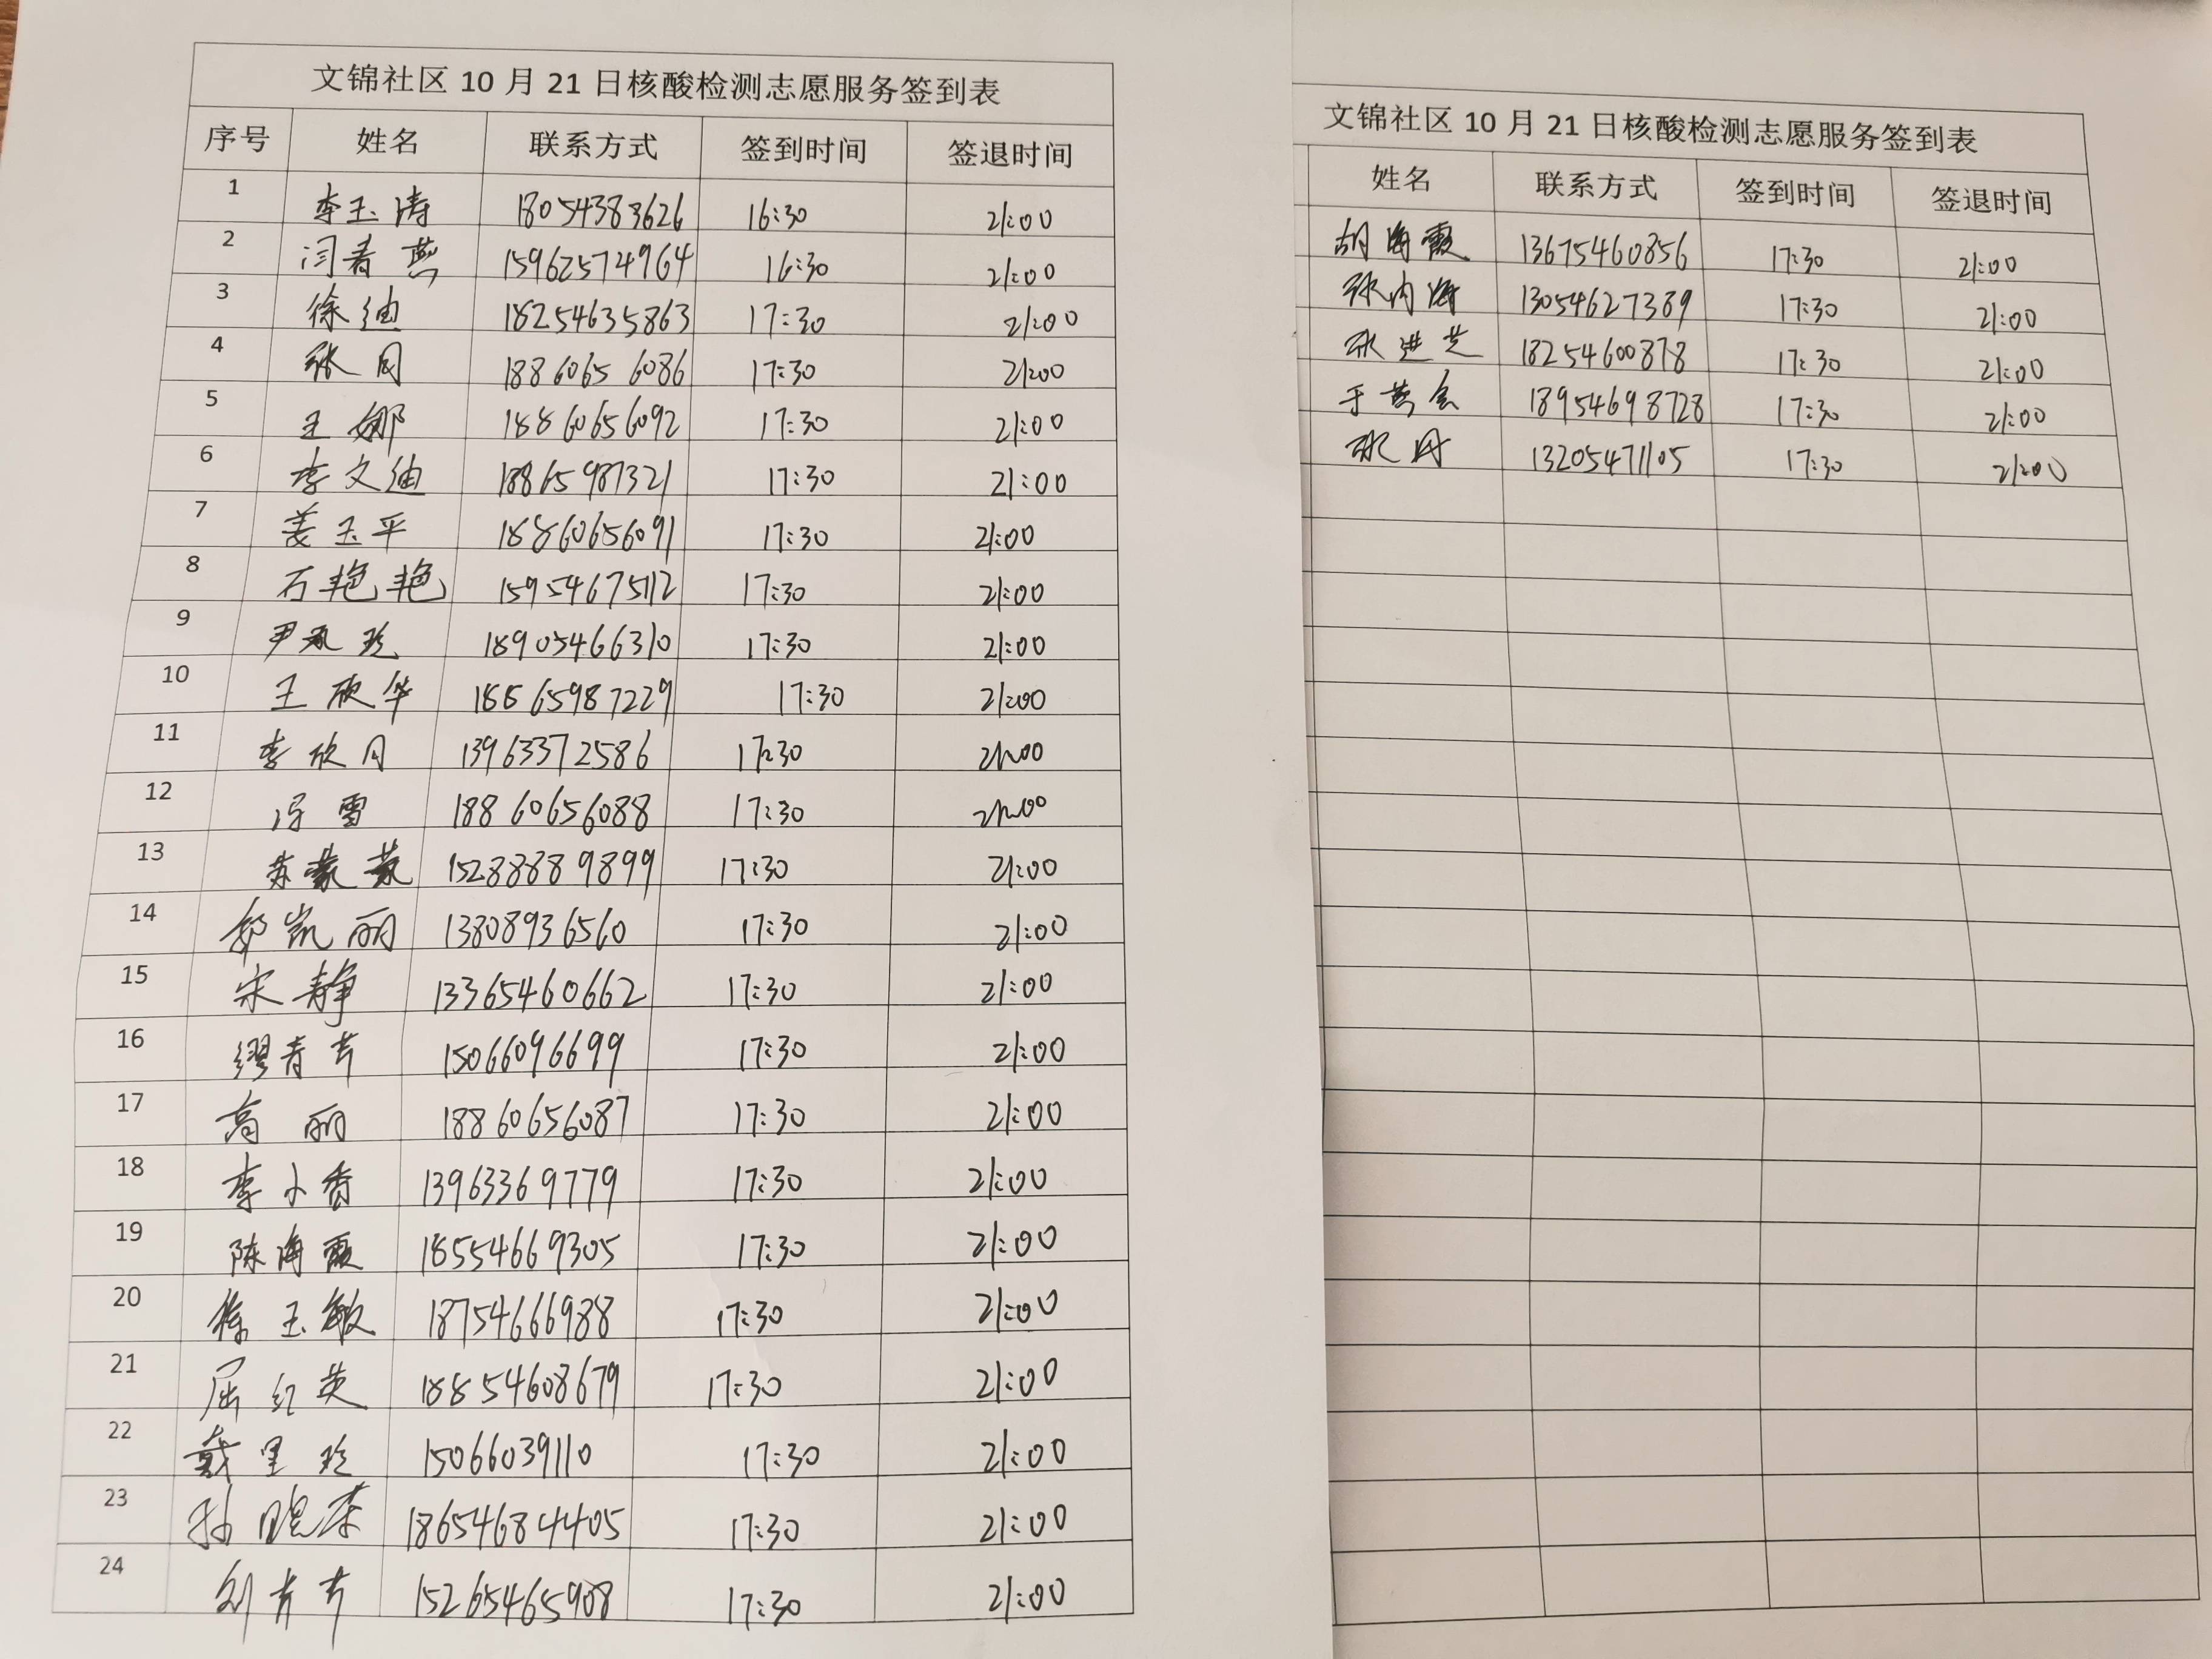 文锦社区 10 月 21 日核酸检测志愿服务签到表
序号 姓名 联系方式 签到时间 签退时间
1 李玉涛 18054383626 16:30 21:00
2 闫春燕 15962574964 16:30 21:00
3 徐迪 18254635863 17:30 21:00
4 张月 18860656086 17:30 21:00
5 王娜 18860656092 17:30 21:00
6 李文迪 18865987321 17:30 21:00
7 姜玉平 18860656091 17:30 21:00
8 石艳艳 15954675112 17:30 21:00
9 尹凤玲 18905466310 17:30 21:00
10 王欣华 18865987229 17:30 21:00
11 李欣月 13963372586 17:30 21:00
12 冯雪 18860656088 17:30 21:00
13 苏蒙蒙 15288889899 17:30 21:00
14 郭凯丽 13808936560 17:30 21:00
15 宋静 13365460662 17:30 21:00
16 缪青芹 15066096699 17:30 21:00
17 高丽 18860656087 17:30 21:00
18 李小香 13963369779 17:30 21:00
19 陈海霞 18554669305 17:30 21:00
20 徐玉敏 18754666988 17:30 21:00
21 屈红英 18854608679 17:30 21:00
22 戴里玲 15066039110 17:30 21:00
23 孙 18654684405 17:30 21:00
24 刘青芹 15265465908 17:30 21:00
文锦社区 10 月 21 日核酸检测志愿服务签到表
姓名 联系方式 签到时间 签退时间
胡海霞 13675460856 17:30 21:00
张内海 13054627389 17:30 21:00
张进芝 18254600878 17:30 21:00
于 18954698728 17:30 21:00
张丹 13205471105 17:30 21:00